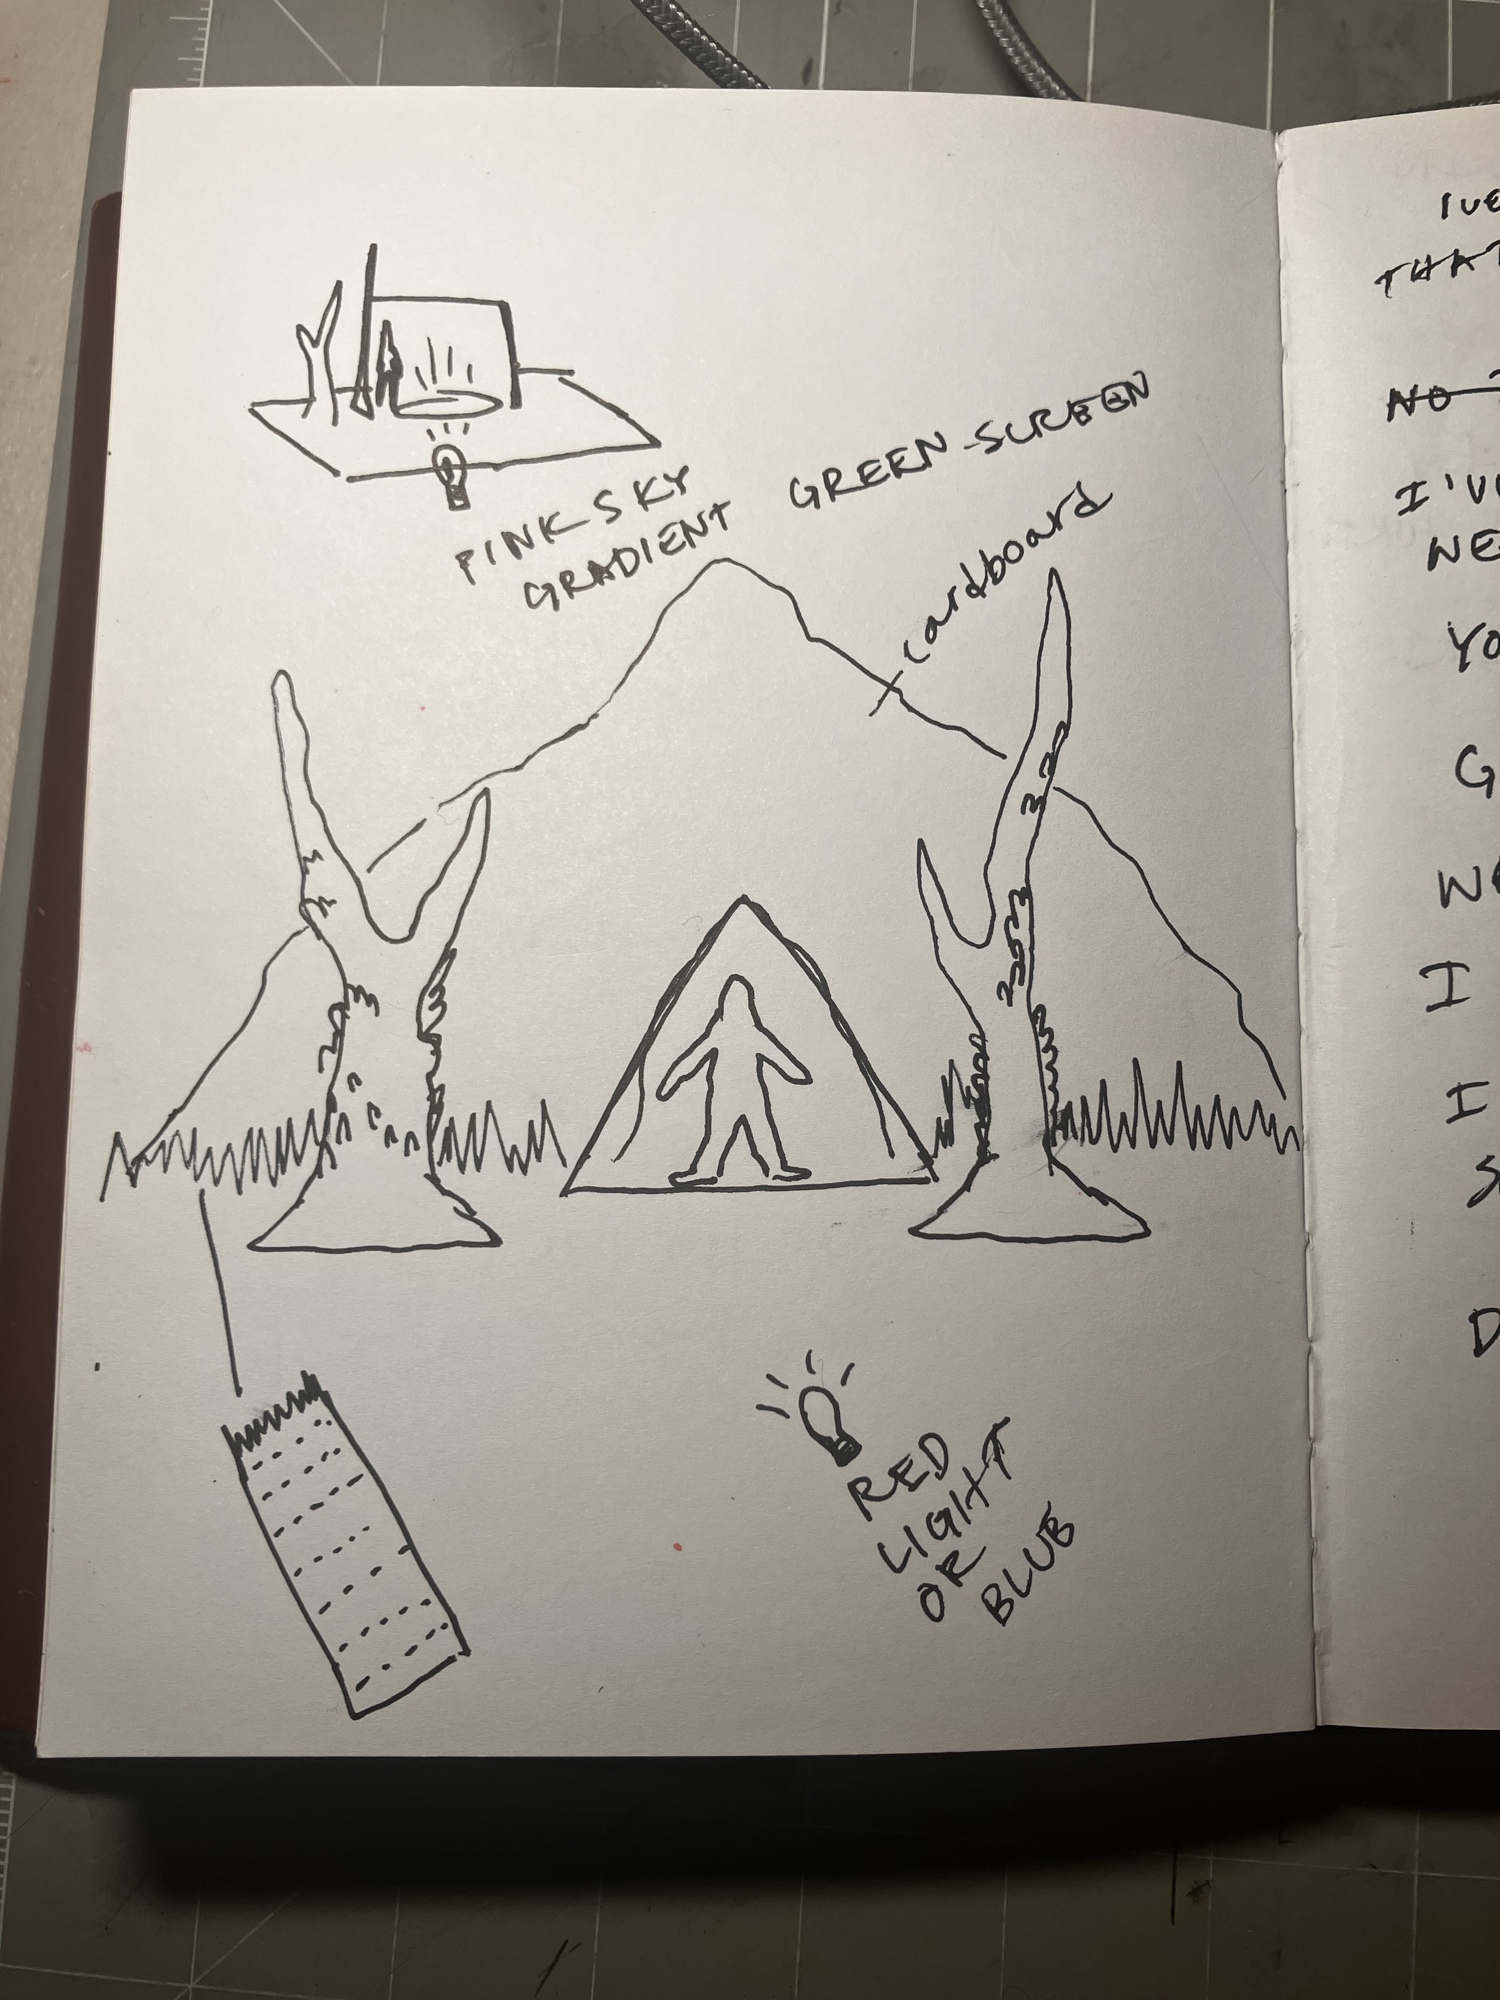 PINK SKY
GRADIENT
GREEN-SCREEN
cardboard
RED
LIGHT
OR
BLUE
THAT
NO
I'V
WE
YO
G
I
I
S
D